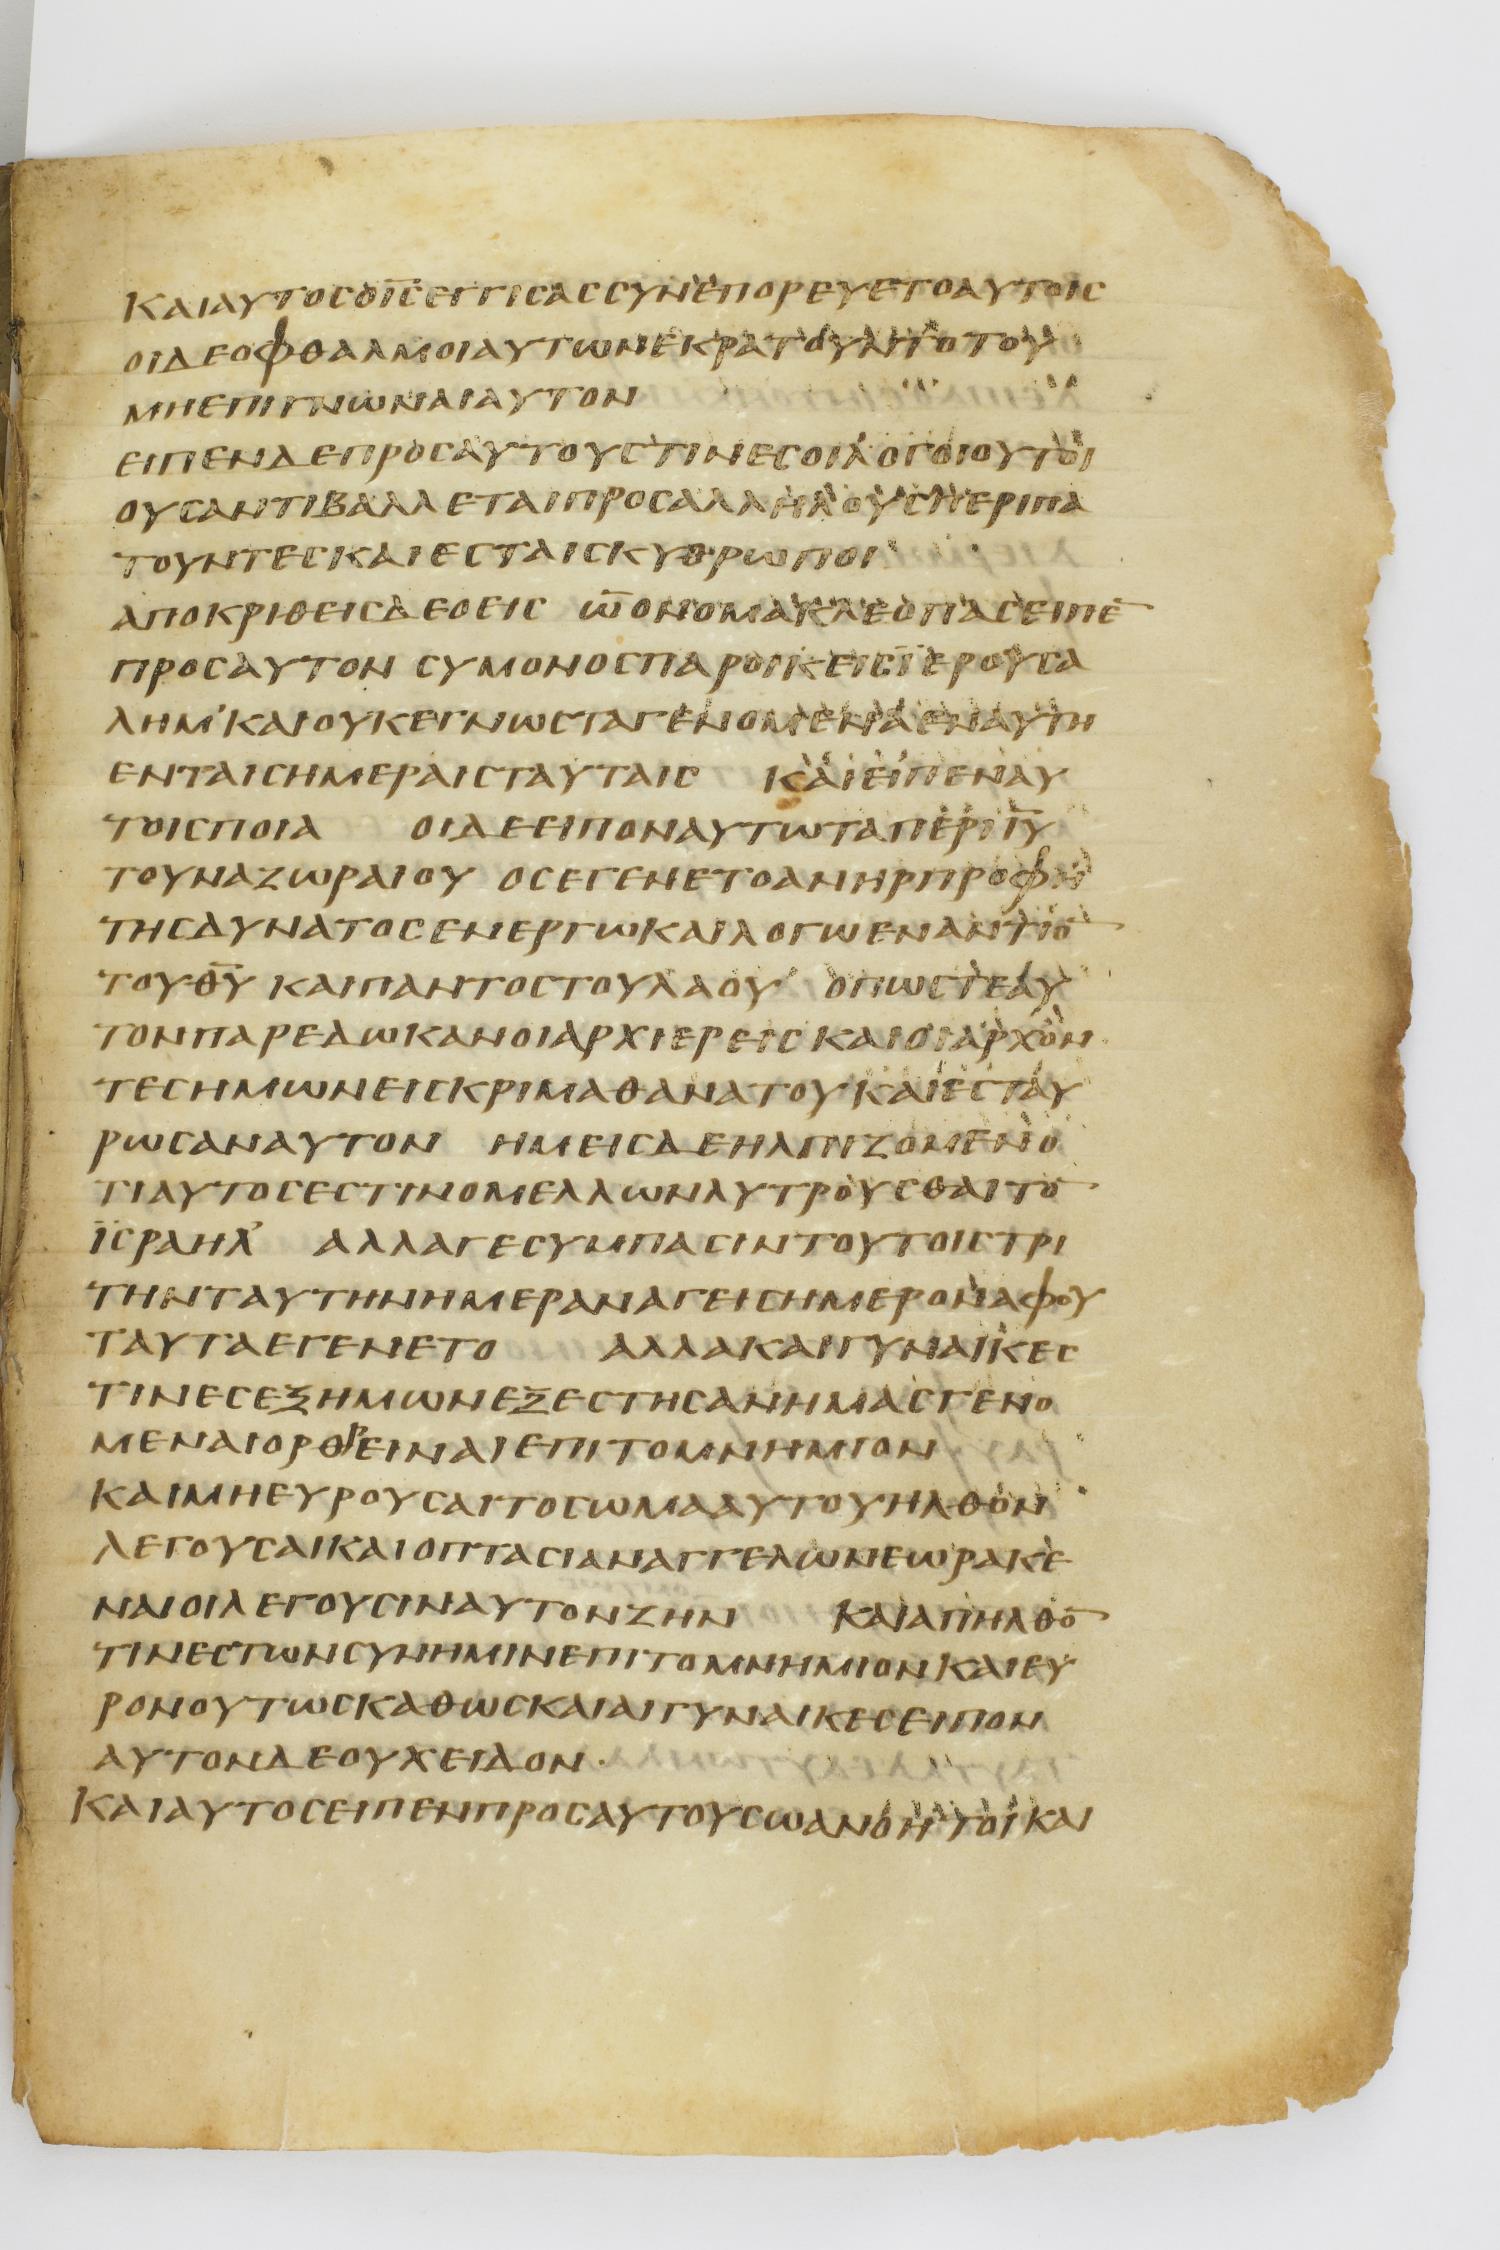 ΚΑΙΑΥΤΟΣΟΙ̅Σ̅ΕΓΓΙΣΑΣΣΥΝΕΠΟΡΕΥΕΤΟΑΥΤΟΙΣ
ΟΙΔΕΟΦΘΑΛΜΟΙΑΥΤΩΝΕΚΡΑΤΟΥΝΤΟΤΟΥ
ΜΗΕΠΙΓΝΩΝΑΙΑΥΤΟΝ
ΕΙΠΕΝΔΕΠΡΟΣΑΥΤΟΥΣΤΙΝΕΣΟΙΛΟΓΟΙΟΥΤΟΙ
ΟΥΣΑΝΤΙΒΑΛΛΕΤΑΙΠΡΟΣΑΛΛΗΛΟΥΣΠΕΡΙΠΑ
ΤΟΥΝΤΕΣΚΑΙΕΣΤΑΙΣΚΥΘΡΩΠΟΙ
ΑΠΟΚΡΙΘΕΙΣΔΕΟΕΙΣ Ω̅ΟΝΟΜΑΚΛΕΟΠΑΣΕΙΠΕ̅
ΠΡΟΣΑΥΤΟΝ ΣΥΜΟΝΟΣΠΑΡΟΙΚΕΙΣΪΕΡΟΥΣΑ
ΛΗΜ’ΚΑΙΟΥΚΕΓΝΩΣΤΑΓΕΝΟΜΕΝΑΕΝΑΥΤΗ
ΕΝΤΑΙΣΗΜΕΡΑΙΣΤΑΥΤΑΙΣ ΚΑΙΕΙΠΕΝΑΥ
ΤΟΙΣΠΟΙΑ ΟΙΔΕΕΙΠΟΝΑΥΤΩΤΑΠΕΡΙΙ̅Υ̅
ΤΟΥΝΑΖΩΡΑΙΟΥ ΟΣΕΓΕΝΕΤΟΑΝΗΡΠΡΟΦΗ
ΤΗΣΔΥΝΑΤΟΣΕΝΕΡΓΩΚΑΙΛΟΓΩΕΝΑΝΤΙΟ̅
ΤΟΥΘ̅Υ̅ ΚΑΙΠΑΝΤΟΣΤΟΥΛΑΟΥ ΟΠΩΣΤΕΑΥ
ΤΟΝΠΑΡΕΔΩΚΑΝΟΙΑΡΧΙΕΡΕΙΣΚΑΙΟΙΑΡΧΟΝ
ΤΕΣΗΜΩΝΕΙΣΚΡΙΜΑΘΑΝΑΤΟΥΚΑΙΕΣΤΑΥ
ΡΩΣΑΝΑΥΤΟΝ ΗΜΕΙΣΔΕΗΛΠΙΖΟΜΕΝΟ
ΤΙΑΥΤΟΣΕΣΤΙΝΟΜΕΛΛΩΝΛΥΤΡΟΥΣΘΑΙΤΟ̅
ΪΣΡΑΗΛ’ ΑΛΛΑΓΕΣΥΜΠΑΣΙΝΤΟΥΤΟΙΣΤΡΙ
ΤΗΝΤΑΥΤΗΝΗΜΕΡΑΝΑΓΕΙΣΗΜΕΡΟΝΑΦΟΥ
ΤΑΥΤΑΕΓΕΝΕΤΟ ΑΛΛΑΚΑΙΓΥΝΑΙΚΕΣ
ΤΙΝΕΣΕΞΗΜΩΝΕΞΕΣΤΗΣΑΝΗΜΑΣΓΕΝΟ
ΜΕΝΑΙΟΡΘΡΕΙΝΑΙΕΠΙΤΟΜΝΗΜΙΟΝ
ΚΑΙΜΗΕΥΡΟΥΣΑΙΤΟΣΩΜΑΑΥΤΟΥΗΛΘΟΝ
ΛΕΓΟΥΣΑΙΚΑΙΟΠΤΑΣΙΑΝΑΓΓΕΛΩΝΕΩΡΑΚΕ
ΝΑΙΟΙΛΕΓΟΥΣΙΝΑΥΤΟΝΖΗΝ ΚΑΙΑΠΗΛΘΟ̅
ΤΙΝΕΣΤΩΝΣΥΝΗΜΙΝΕΠΙΤΟΜΝΗΜΙΟΝΚΑΙΕΥ
ΡΟΝΟΥΤΩΣΚΑΘΩΣΚΑΙΑΙΓΥΝΑΙΚΕΣΕΙΠΟΝ
ΑΥΤΟΝΔΕΟΥΧΕΙΔΟΝ·
ΚΑΙΑΥΤΟΣΕΙΠΕΝΠΡΟΣΑΥΤΟΥΣΩΑΝΟΗΤΟΙΚΑΙ